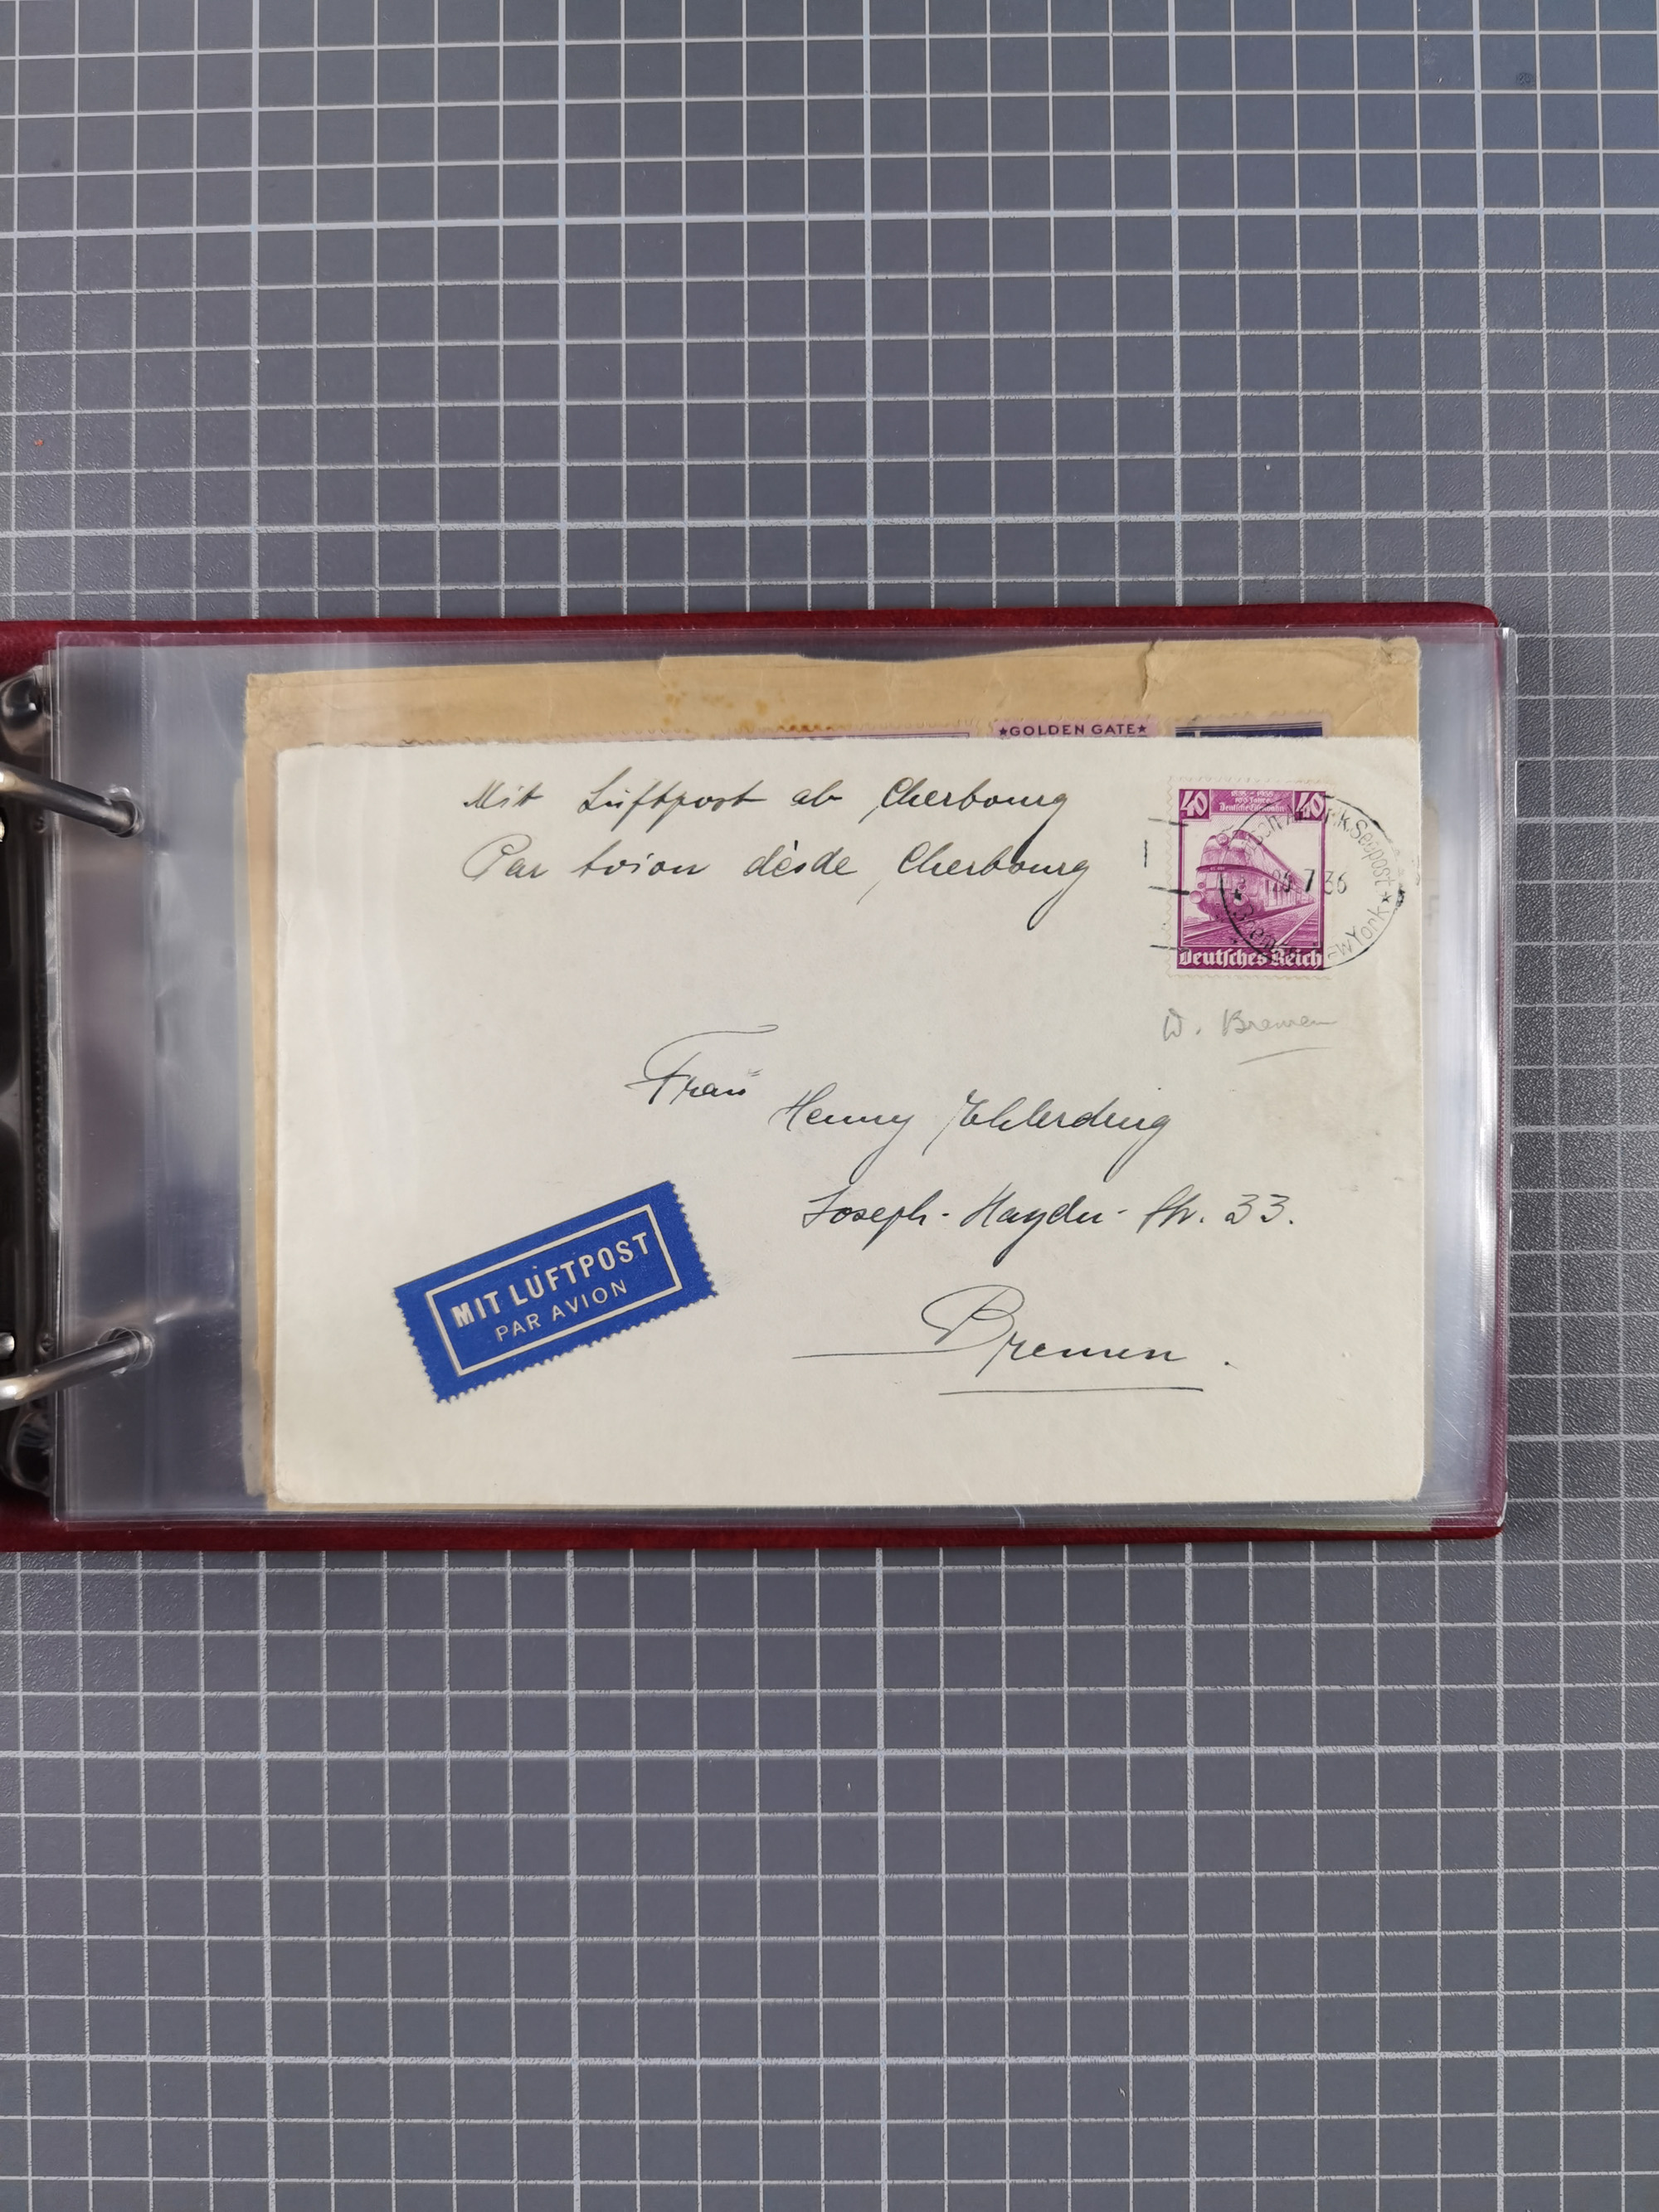 ★GOLDEN GATE★
Mit Luftpost ab Cherbourg
Par avion dèsde Cherbourg
40 40
1835 - 1935
100 Jahre
Deutsche Eisenbahn
Deutsches Reich
Seepost
7 36
W. Bremen
Frau
Henny Ehlerding
Joseph-Haydn-Str. 33.
MIT LUFTPOST
PAR AVION
Bremen.